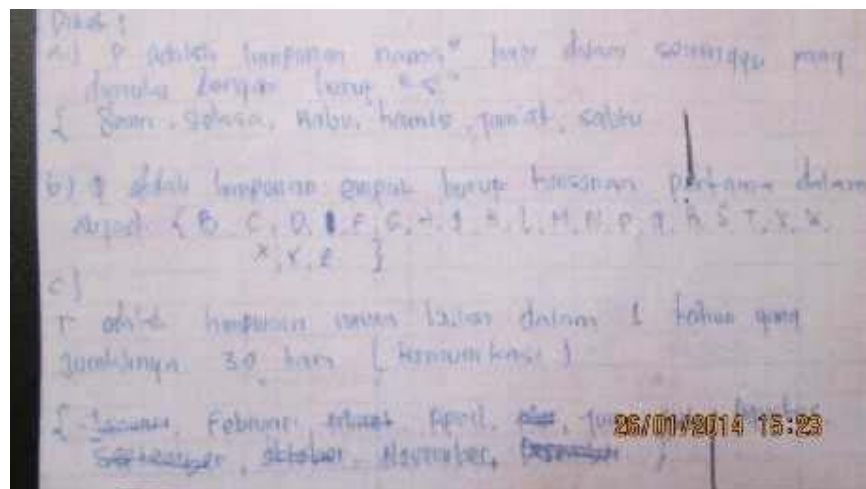 Diket :
a.) P adalah himpunan nama" hari dalam seminggu yang
dimulai dengan huruf "S"
{ Senin, Selasa, Rabu, kamis, jum'at, sabtu
b) adalah himpunan empat huruf konsonan pertama dalam
Abjad { B, C, D, F, G, H, J, K, L, M, N, P, Q, R, S, T, V, W,
X, Y, Z }
c)
T adalah himpunan bulan dalam 1 tahun yang
jumlahnya 30 hari
{ Januari, Februari, Maret, April,
September, oktober, November, Desember
26/01/2014 15:23